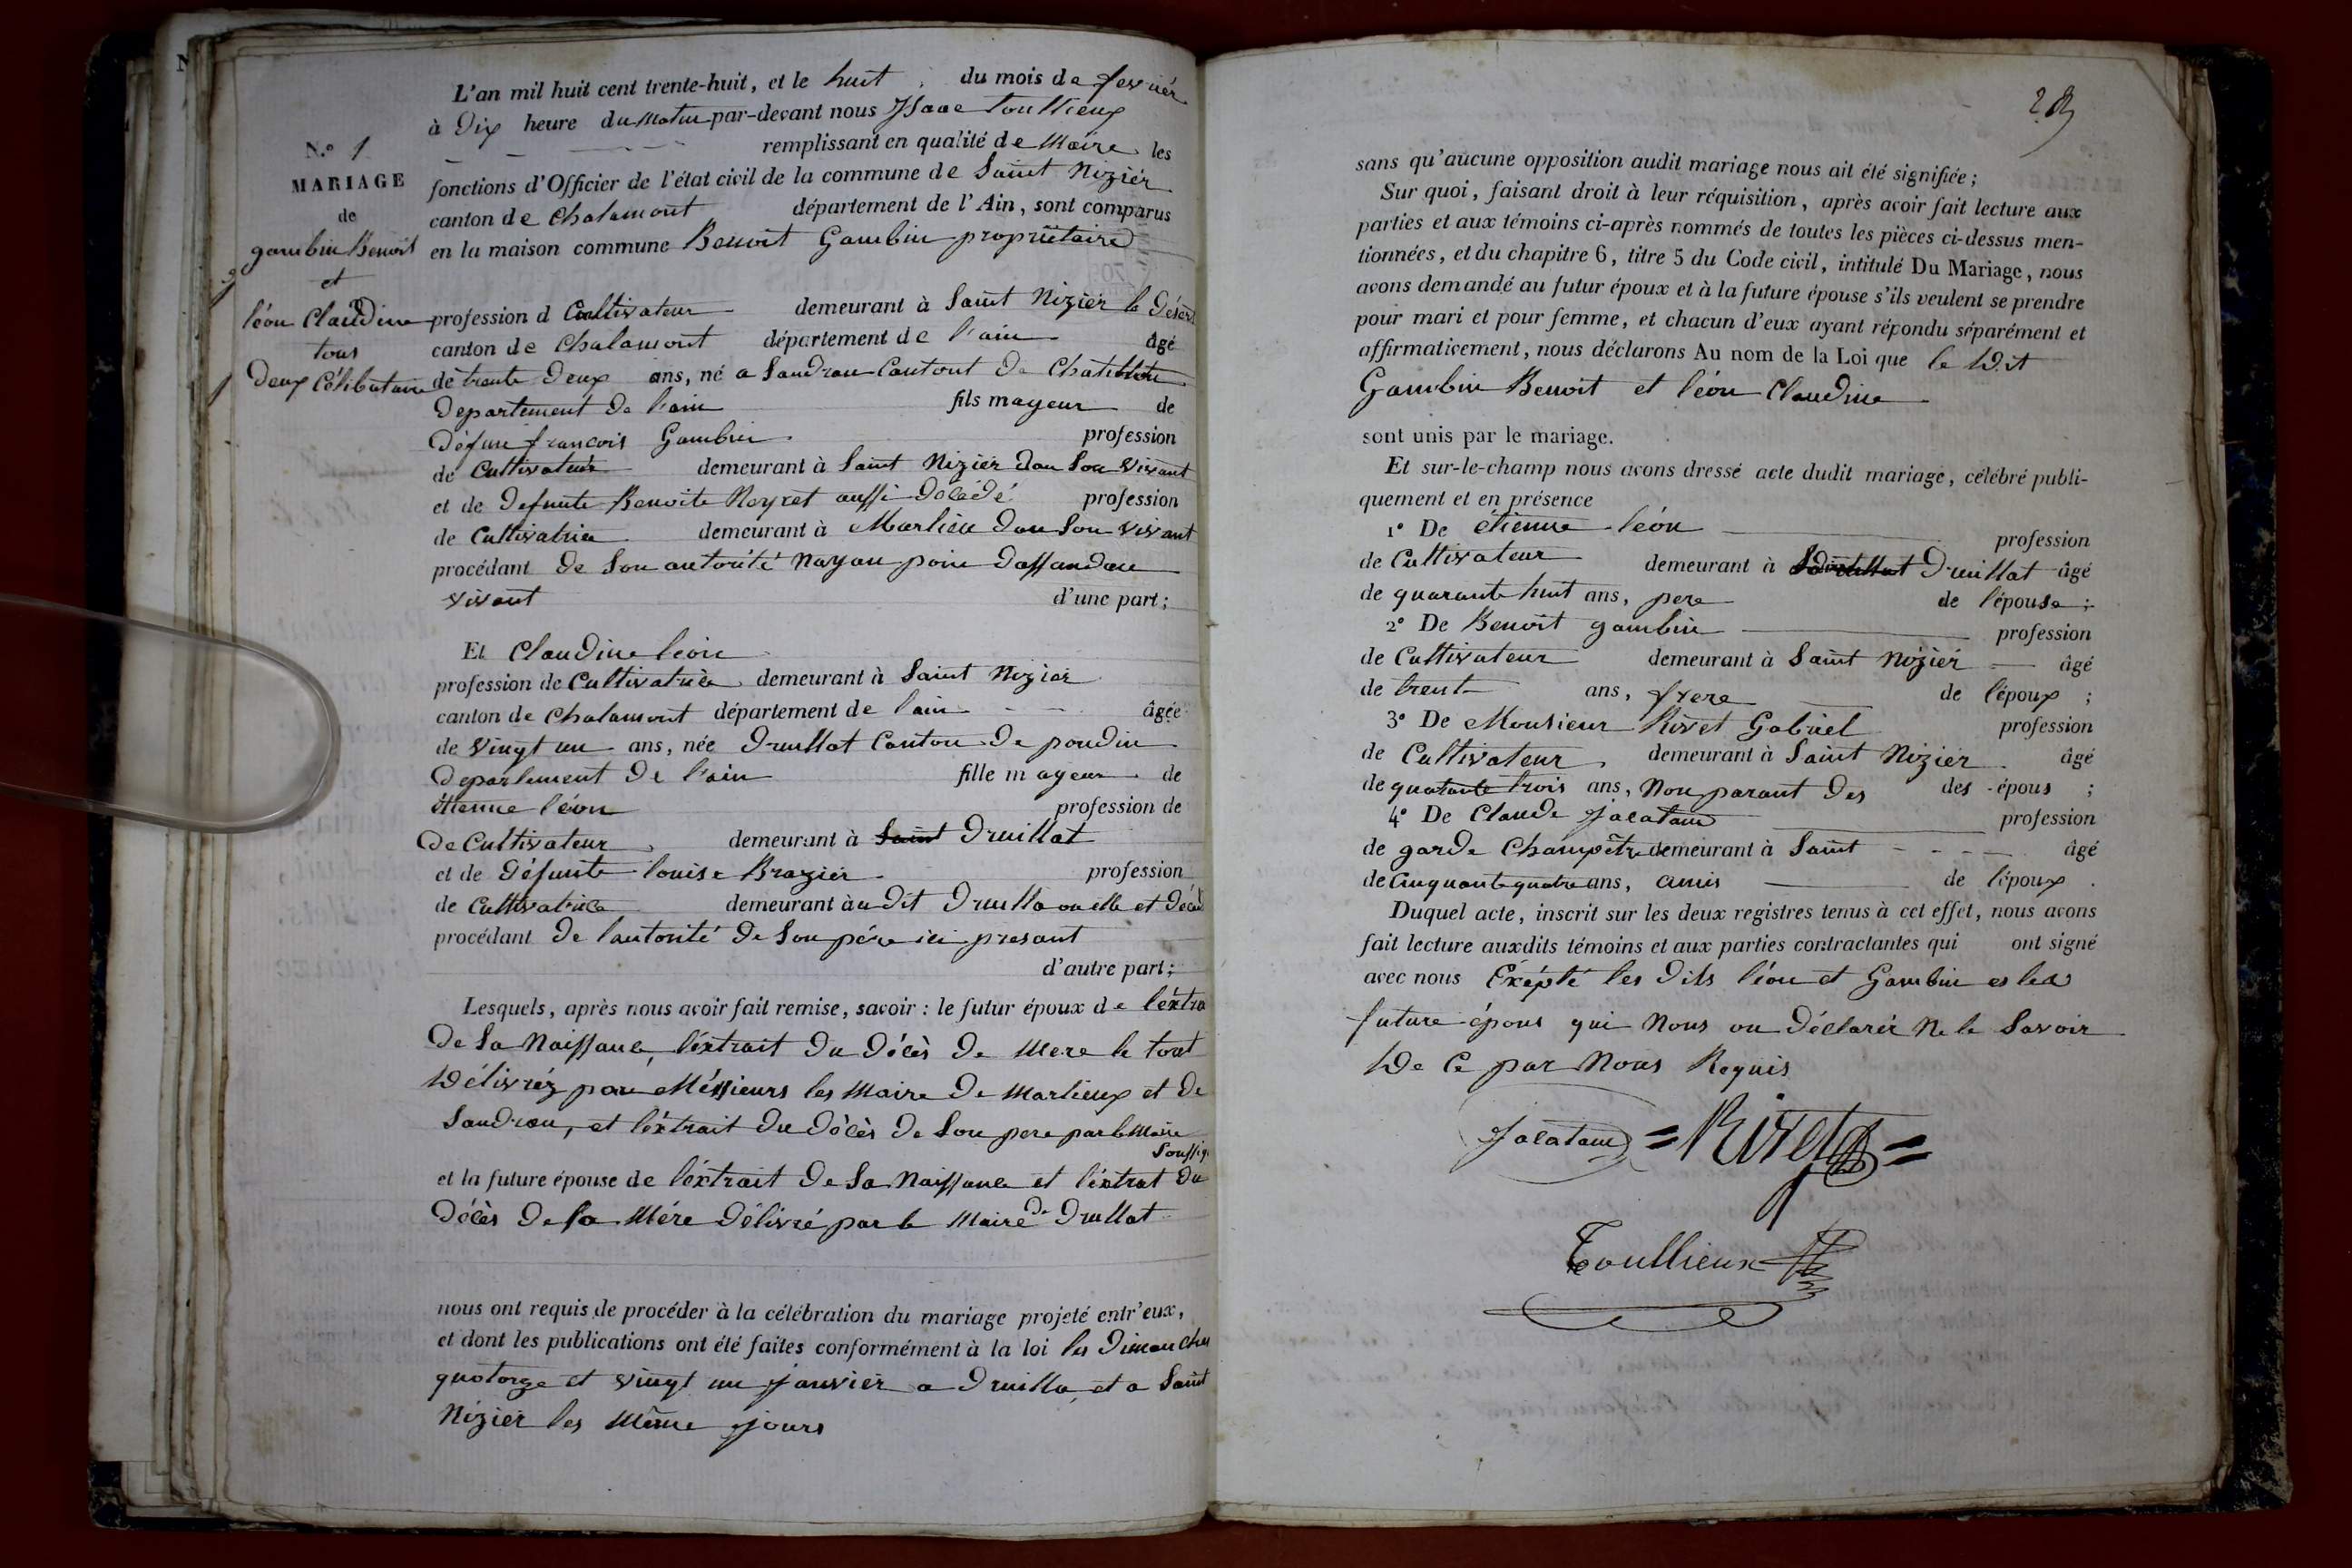 L'an mil huit cent trente-huit, et le huit du mois de fevriér
à Dix heure du Matin par-devant nous Isaac toullieux
remplissant en qualité de Maire les
fonctions d'Officier de l'état civil de la commune de Saint Niziér
canton de Chalamont département de l'Ain, sont comparus
en la maison commune Benoit Gambin propriétaire
N.° 1
MARIAGE
de
gambin Benoit
et
léon Claudine
tous
Deux Célibataire
profession d Cultivateur demeurant à Saint Niziér le Désert
canton de Chalamont département de l'ain âgé
de trente Deux ans, né a Sandran Cantont De Chatillon
Departement De l'ain fils mageur de
Défun francois Gambin profession
de Cultivateur demeurant à Saint Niziér dan Son Vivant
et de Defunte Benoite Neyret aussi Décédé profession
de Cultivatrice demeurant à Marlieu dan Son Vivant
procédant de Son autorité Nayan poin dassandan
vivant d'une part;
Et Claudine léon
profession de Cultivatrice demeurant à Saint Niziér
canton de Chalamont département de l'ain âgée
de Vingt un ans, née Druillat Canton De pondin
Departement De l'ain fille mageur de
étienne léon profession de
De Cultivateur demeurant à Saint Druillat
et de Défunte louise Braziér profession
de Cultivatrice demeurant à u Dit Druilla ou elle et Décéd
procédant De l'autorité De Son pére ici presant
d'autre part;
Lesquels, après nous avoir fait remise, savoir: le futur époux de l'éxtra
De Sa Naissance, l'éxtrait Du Décès De Mere le tout
Délivréz par Méssieurs les Maire De Marlieux et De
Sandran, et l'éxtrait Du Décès De Son pere par le Maire
Soussig
et la future épouse de l'éxtrait De Sa Naissance et l'éxtrat Du
Décès De Sa Mére Délivré par le Maire de Druillat
nous ont requis de procéder à la célébration du mariage projeté entr'eux,
et dont les publications ont été faites conformément à la loi les Dimanches
quatorze et Vingt un janvier a Druilla, et a Saint
Niziér les Même jours
28
sans qu'aucune opposition audit mariage nous ait été signifiée;
Sur quoi, faisant droit à leur réquisition, après avoir fait lecture aux
parties et aux témoins ci-après nommés de toutes les pièces ci-dessus men-
tionnées, et du chapitre 6, titre 5 du Code civil, intitulé Du Mariage, nous
avons demandé au futur époux et à la future épouse s'ils veulent se prendre
pour mari et pour femme, et chacun d'eux ayant répondu séparément et
affirmativement, nous déclarons Au nom de la Loi que le Dit
Gambin Benoit et léon Claudine
sont unis par le mariage.
Et sur-le-champ nous avons dressé acte dudit mariage, célébré publi-
quement et en présence
1° De étienne léon profession
de Cultivateur demeurant à Druillat âgé
de quarante huit ans, pere de l'épouse;
2° De Benoit gambin profession
de Cultivateur demeurant à Saint Niziér âgé
de trente ans, frere de l'époux;
3° De Monsieur Rivet Gabriel profession
de Cultivateur demeurant à Saint Nizier âgé
de quatante trois ans, Non parant Des des épous;
4° De Claude Jacatand profession
de garde Champêtre demeurant à Saint âgé
de Cinquante quatre ans, amis de l'époux.
Duquel acte, inscrit sur les deux registres tenus à cet effet, nous avons
fait lecture auxdits témoins et aux parties contractantes qui ont signé
avec nous Éxépté les Dits léon et Gambin es les
future épous qui Nous on Déclarér Ne le Savoir
De Ce par Nous Requis
Jacatand = Rivet =
Toullieux